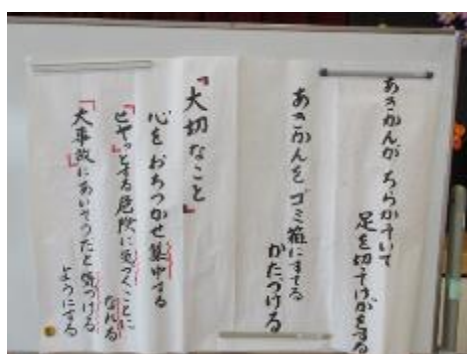 あきかんが ちらかっていて
足を切ってけがをする
あきかんをゴミ箱にすてる
かたづける
「大切なこと」
心をおちつかせ集中する
「ヒヤッ」とする危険に気づくことに
なれる
「大事故」にあいそうだと気づける
ようにする